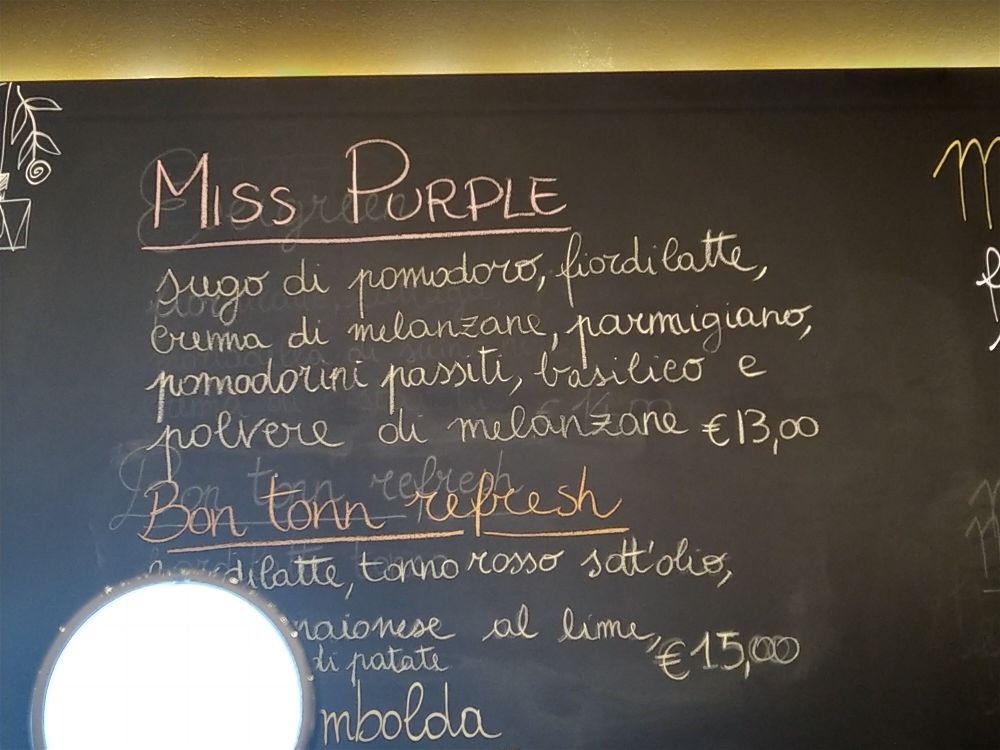 Miss Purple
sugo di pomodoro, fiordilatte,
crema di melanzane, parmigiano,
pomodorini passiti, basilico e
polvere di melanzane €13,00
Bon tonn refresh
tonno rosso sott'olio,
al lime, €15,00
di patate